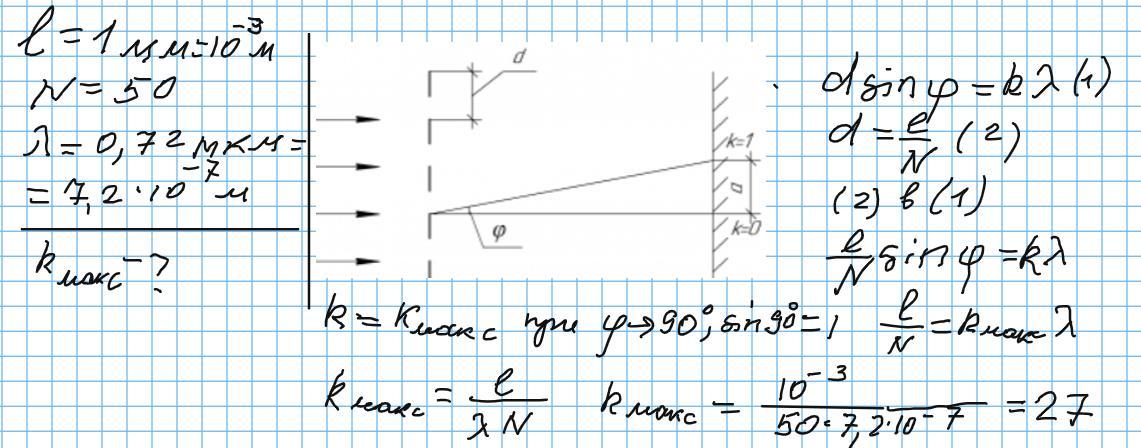 l = 1 мм = 10⁻³ м
N = 50
λ = 0,72 мкм =
= 7,2·10⁻⁷ м
kмакс - ?
d
k=1
a
k=0
φ
d sin φ = kλ (1)
d = l/N (2)
(2) в (1)
l/N sin φ = kλ
k = kмакс при φ→90°, sin 90° = 1 l/N = kмакс λ
kмакс = l/λN kмакс = 10⁻³/50·7,2·10⁻⁷ = 27